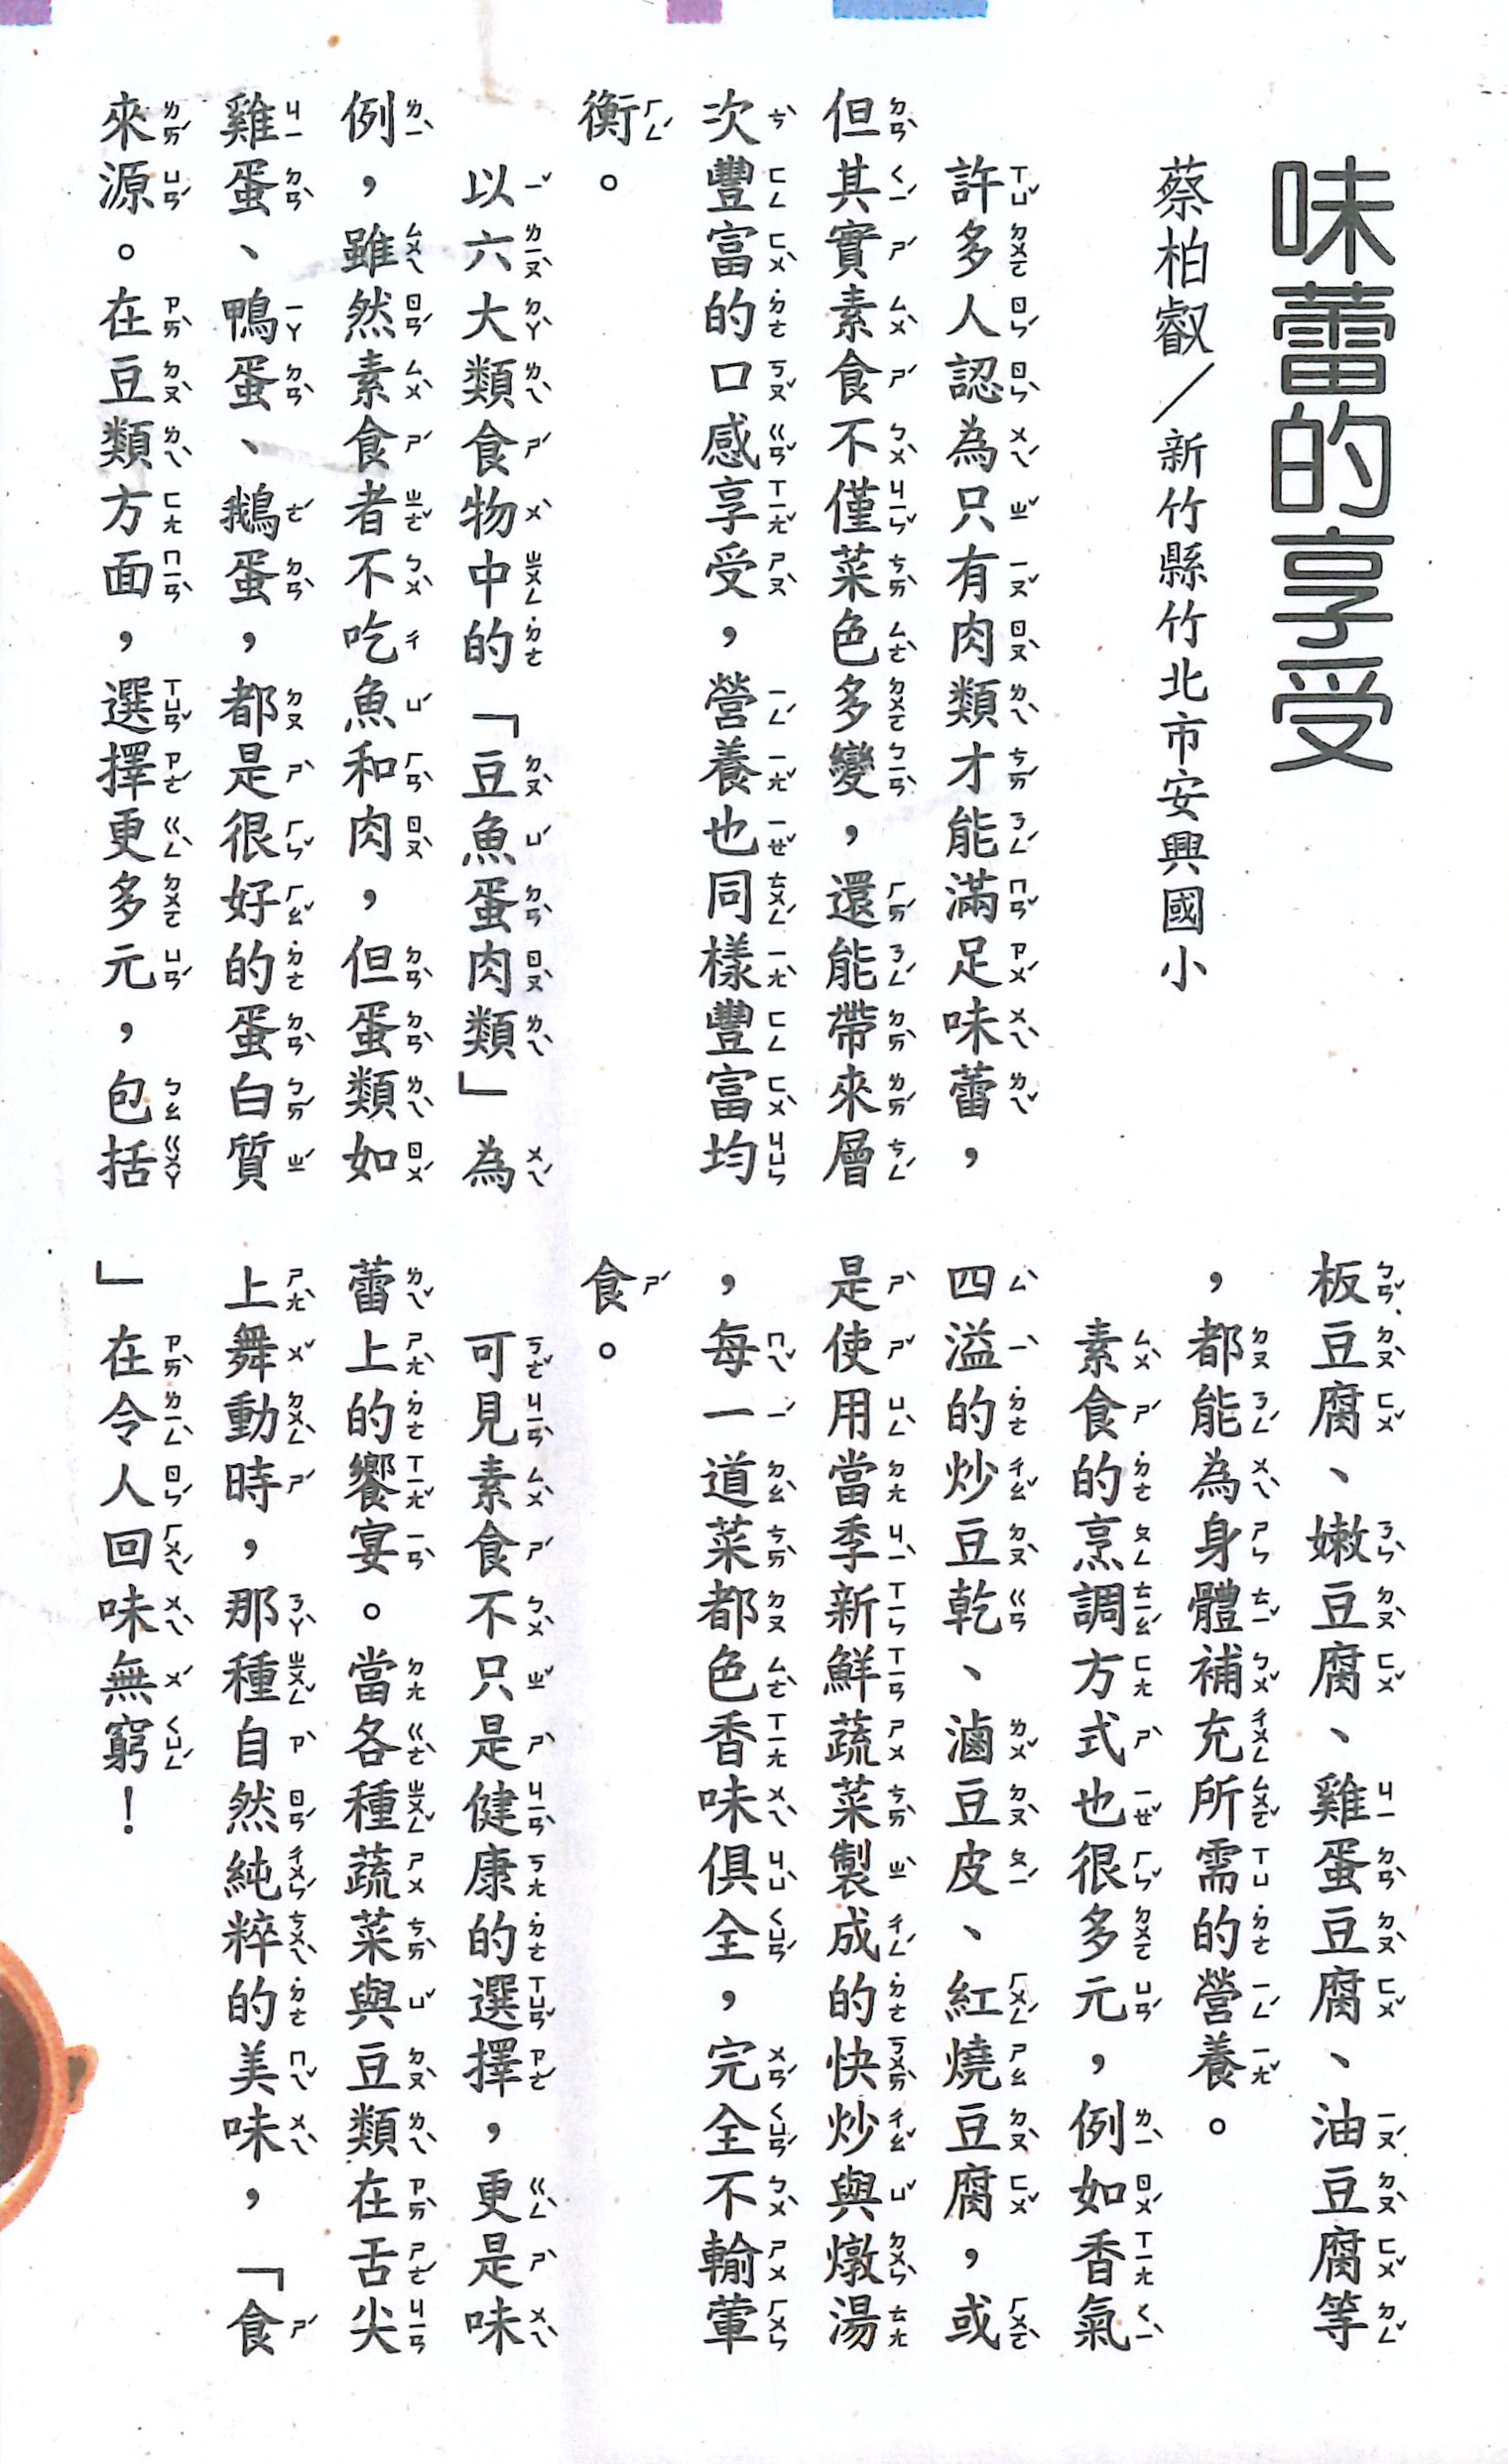 味蕾的享受
蔡柏叡／新竹縣竹北市安興國小
許多人認為只有肉類才能滿足味蕾，
但其實素食不僅菜色多變，還能帶來層
次豐富的口感享受，營養也同樣豐富均
衡。
以六大類食物中的「豆魚蛋肉類」為
例，雖然素食者不吃魚和肉，但蛋類如
雞蛋、鴨蛋、鵝蛋，都是很好的蛋白質
來源。在豆類方面，選擇更多元，包括
板豆腐、嫩豆腐、雞蛋豆腐、油豆腐等
，都能為身體補充所需的營養。
素食的烹調方式也很多元，例如香氣
四溢的炒豆乾、滷豆皮、紅燒豆腐，或
是使用當季新鮮蔬菜製成的快炒與燉湯
，每一道菜都色香味俱全，完全不輸葷
食。
可見素食不只是健康的選擇，更是味
蕾上的饗宴。當各種蔬菜與豆類在舌尖
上舞動時，那種自然純粹的美味，「食
」在令人回味無窮！